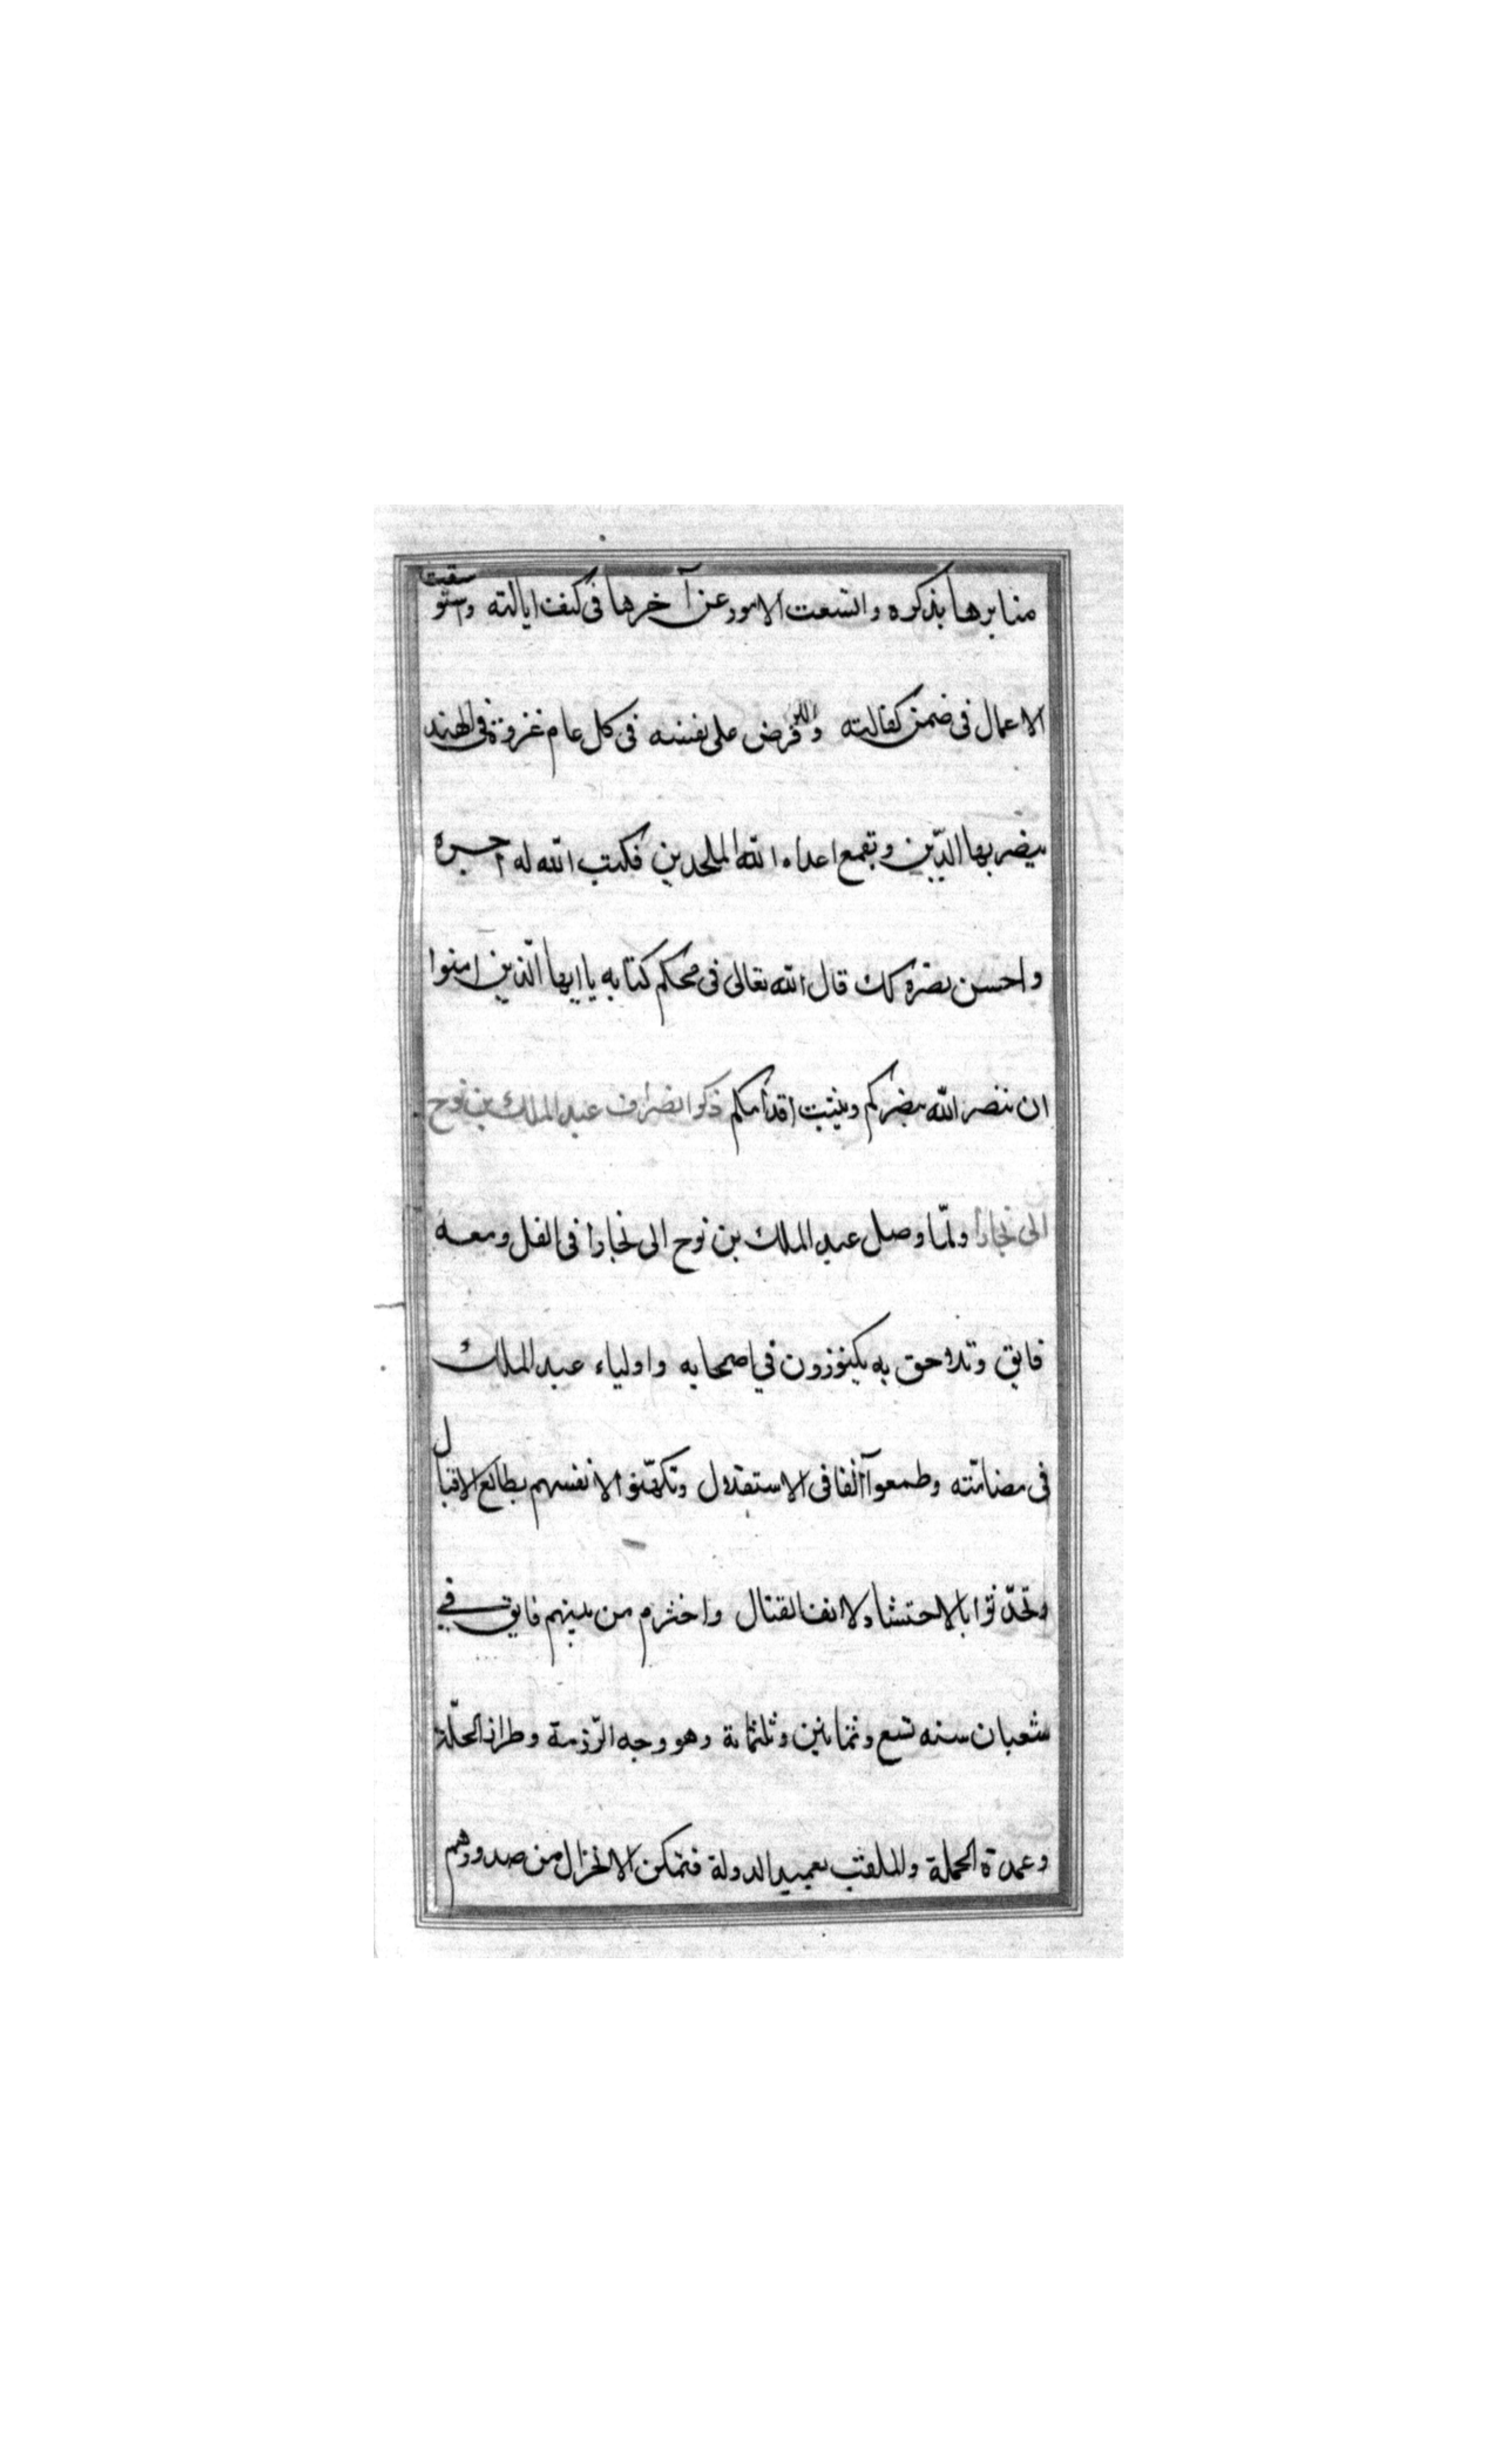 منابرها بذكره واتسعت الامور عن آخرها فى كنف ايالته واستوسقت
الاعمال فى ضمن كفالته وفرض على نفسه فى كل عام غزوة فى الهند
ينصر بها الدّين ويقمع اعداء الله الملحدين فكتب الله له اجره
واحسن نصره كما قال الله تعالى فى محكم كتابه يا ايها الّذين امنوا
ان تنصر الله ينصركم ويثبت اقدامكم ذكر انصراف عبد الملك بن نوح
الى بخارا ولمّا وصل عبد الملك بن نوح الى بخارا فى الفل ومعه
فايق وتلاحق به بكتوزون في اصحابه واولياء عبد الملك
فى مضامّته وطمعوا آنفا فى الاستقلال وتكهّنوا لانفسهم بطالع الاقبال
وتحدّثوا بالاحتشاد لانف القتال واخترم من بينهم فايق في
شعبان سنه تسع وثمانين وثلثماية وهو وجه الرّزمة وطراز الحلّة
وعمدة الجملة والملقب بعميد الدولة فتمكن الانخزال من صدورهم